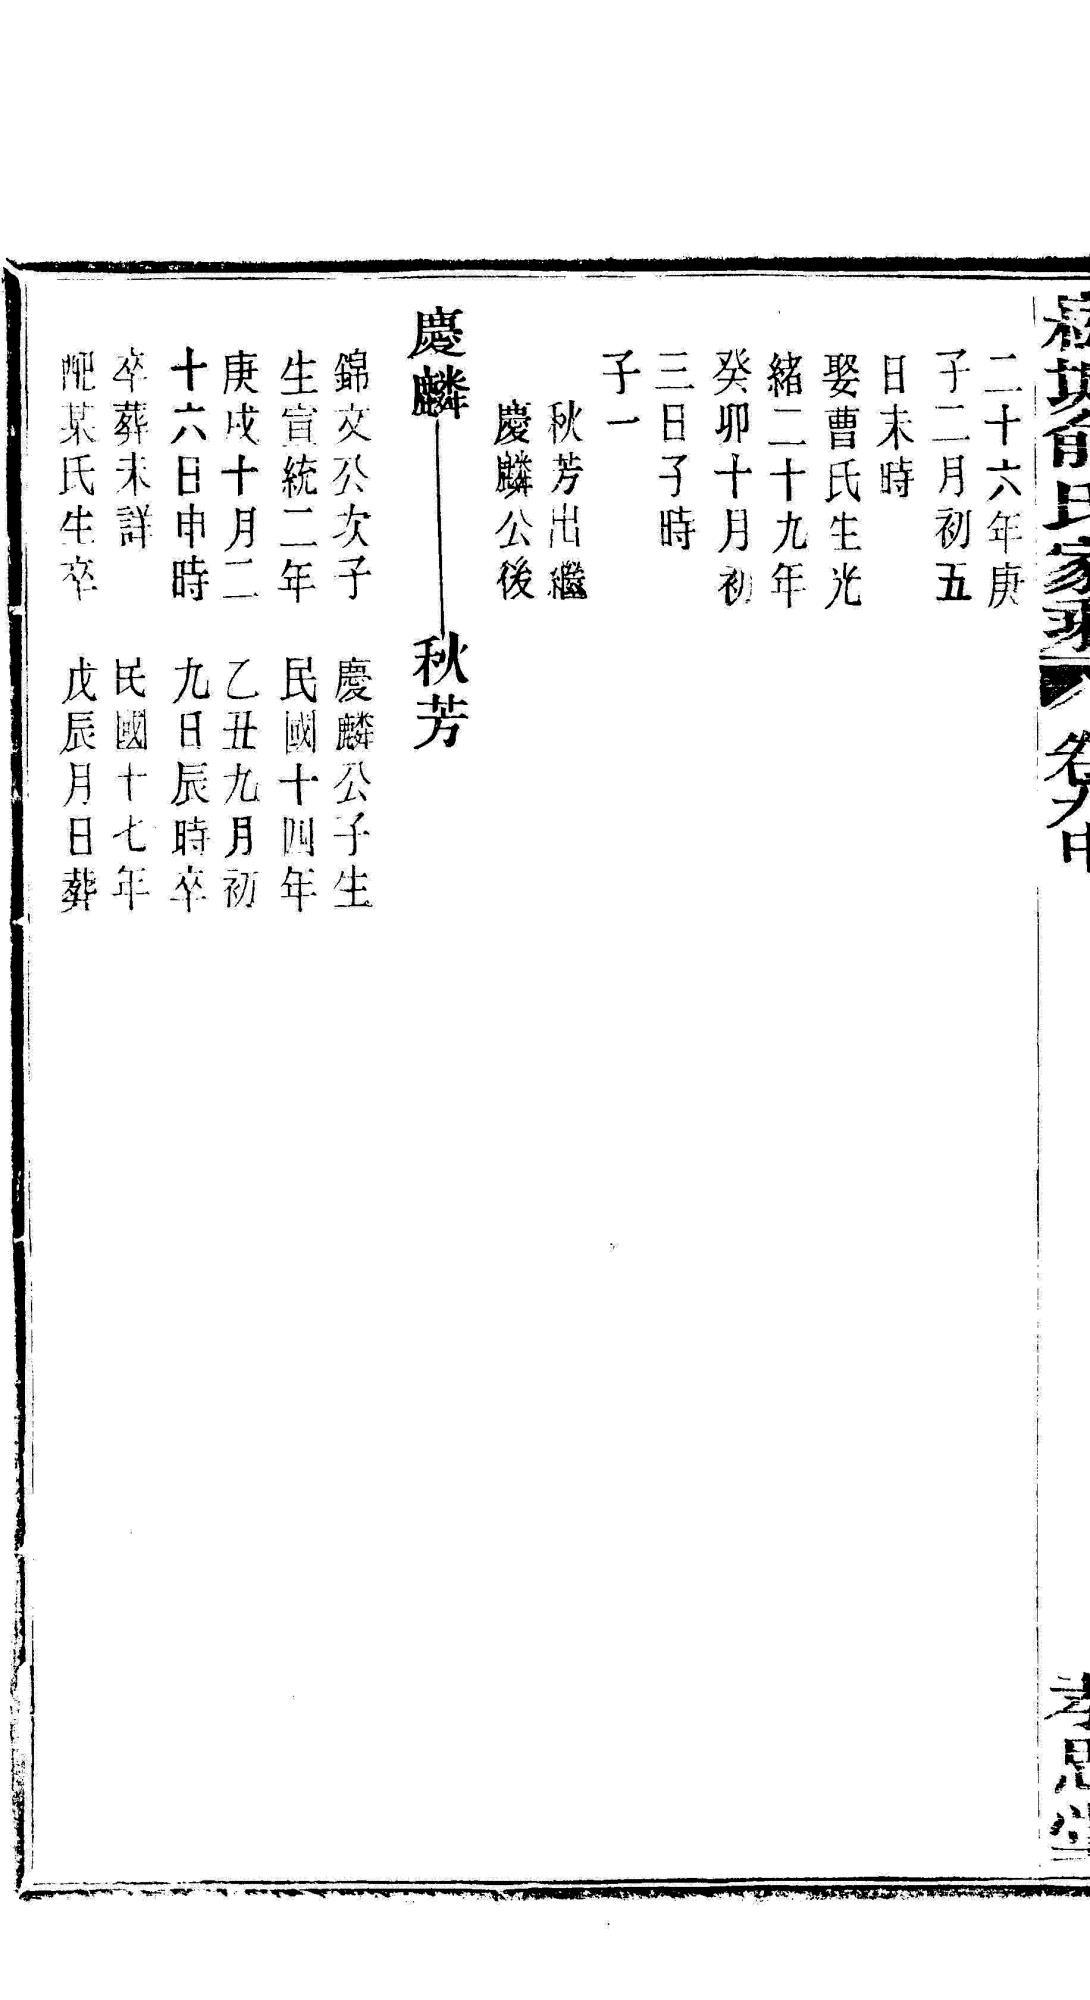 二十六年庚
子二月初五
日未時
娶曹氏生光
緒二十九年
癸卯十月初
三日子時
子一
秋芳出繼
慶麟公後
慶麟
錦文公次子
生宣統二年
庚戌十月二
十六日申時
卒葬未詳
配某氏生卒
秋芳
慶麟公子生
民國十四年
乙丑九月初
九日辰時卒
民國十七年
戊辰月日葬
氏家乘
卷九中
孝思堂